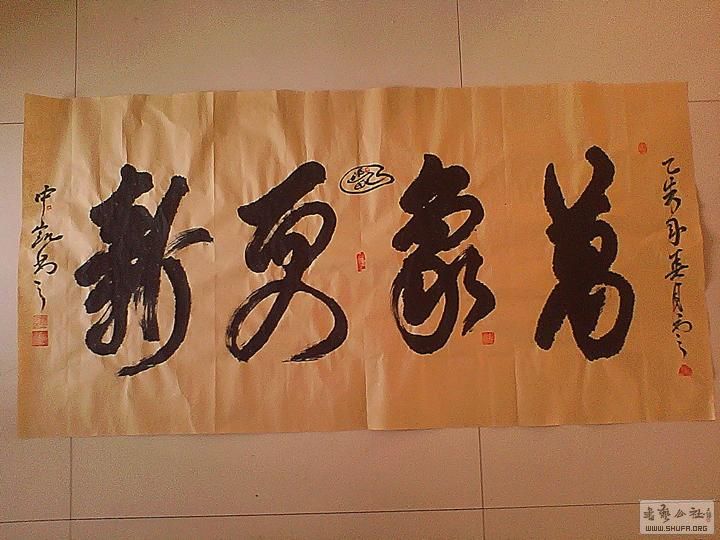 乙未年春月書之
萬象更新
中凱書之
書藝公社
WWW.SHUFA.ORG